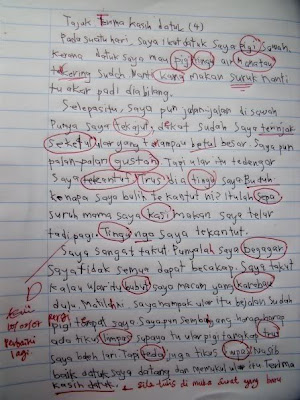 Tajuk Terima Kasih datuk (4)
Pada suatu hari, Saya ikut datuk Saya Pigi sawah.
Kerana datuk saya mau pigi tingu an
kering sudah. Nanti kana makan suruk nanti
tu akar padi diabilang.
Selepasitu, Saya pun jalan-jalan di sawah
Punya Saya, dekat sudah Saya
seketul ular yang terampau betul besar. Saya pun
palan-palan gustan. Tapi ular itu tedengar
Saya tekantut. Trus dia tingu saya. Butuh
kenapa saya bulih tekantut ni? Itulah Sepa
suruh mama saya kasi makan saya telur
tadi pagi. Tingu nga saya tekantut.
Saya sangat takut Punyalah Saya Degagar
Saya tidak semena dapat becakap. Saya takut
kalau ular tu gubut saya macam yang karabau
dulu. Matilah ni. Saya nampak ular itu bejalan sudah
pigi tempat saya. Saya pun Sembayang harap-karap
ada tikus limpas supaya tu ular pigi tangkap tikus
saya buleh lari. Tapi teda juga tikus limpas. Nasib
baik datuk Saya datang dan memukul ular itu. Terima
Kasih datuk.
10/05/07
Perbaiki
lagi.
Sila tulis di muka surat yang baru